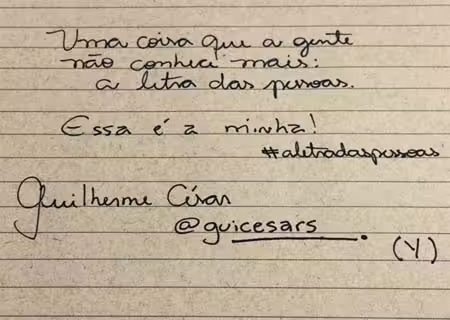 Uma coisa que a gente
não conhece mais:
a letra das pessoas.
Essa é a minha!
#aletradaspessoas
Guilherme César
@guicesars.
(Y)